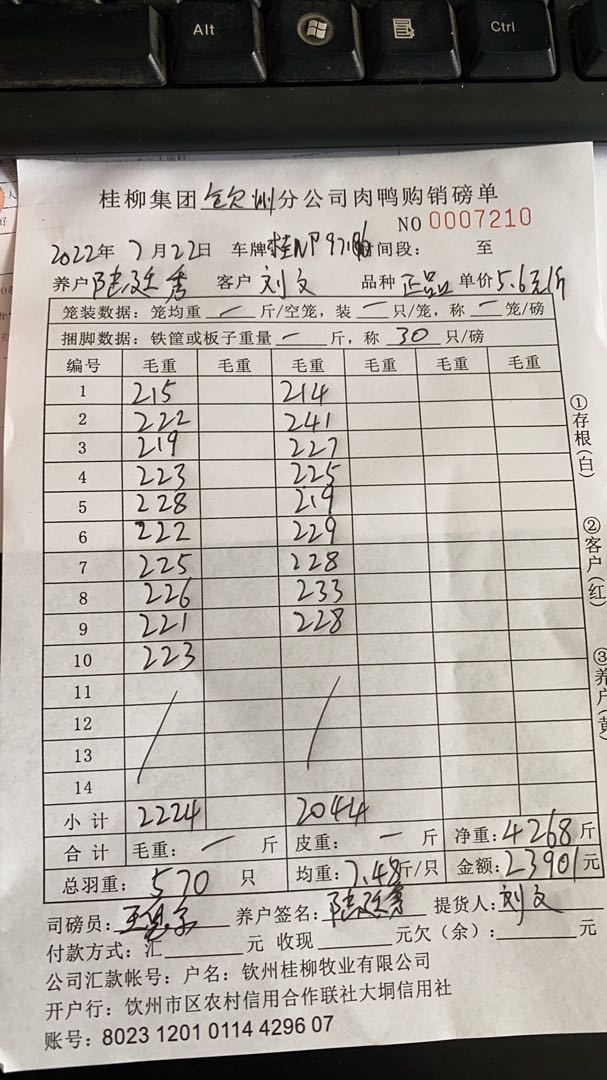 Alt
Ctrl
桂柳集团钦州分公司肉鸭购销磅单
NO 0007210
2022年 7月22日 车牌 桂NP 时间段: 至
养户 陆廷秀 客户 刘文 品种 正品 单价 5.6元/斤
笼装数据: 笼均重 — 斤/空笼, 装 — 只/笼, 称 — 笼/磅
捆脚数据: 铁筐或板子重量 — 斤, 称 30 只/磅
编号 毛重 毛重 毛重 毛重 毛重 毛重
1 215 214
2 222 241
3 219 227
4 223 225
5 228 219
6 222 229
7 225 228
8 226 233
9 221 228
10 223
11
12
13
14
小计 2224 2044
合计 毛重: — 斤 皮重: — 斤 净重: 4268斤
总羽重: 570 只 均重: 7.48斤/只 金额: 23901元
司磅员: 养户签名: 陆廷秀 提货人: 刘文
付款方式: 汇 元 收现 元欠(余): 元
公司汇款帐号: 户名: 钦州桂柳牧业有限公司
开户行: 钦州市区农村信用合作联社大垌信用社
账号: 8023 1201 0114 4296 07
①存根(白)
②客户(红)
③养户(黄)